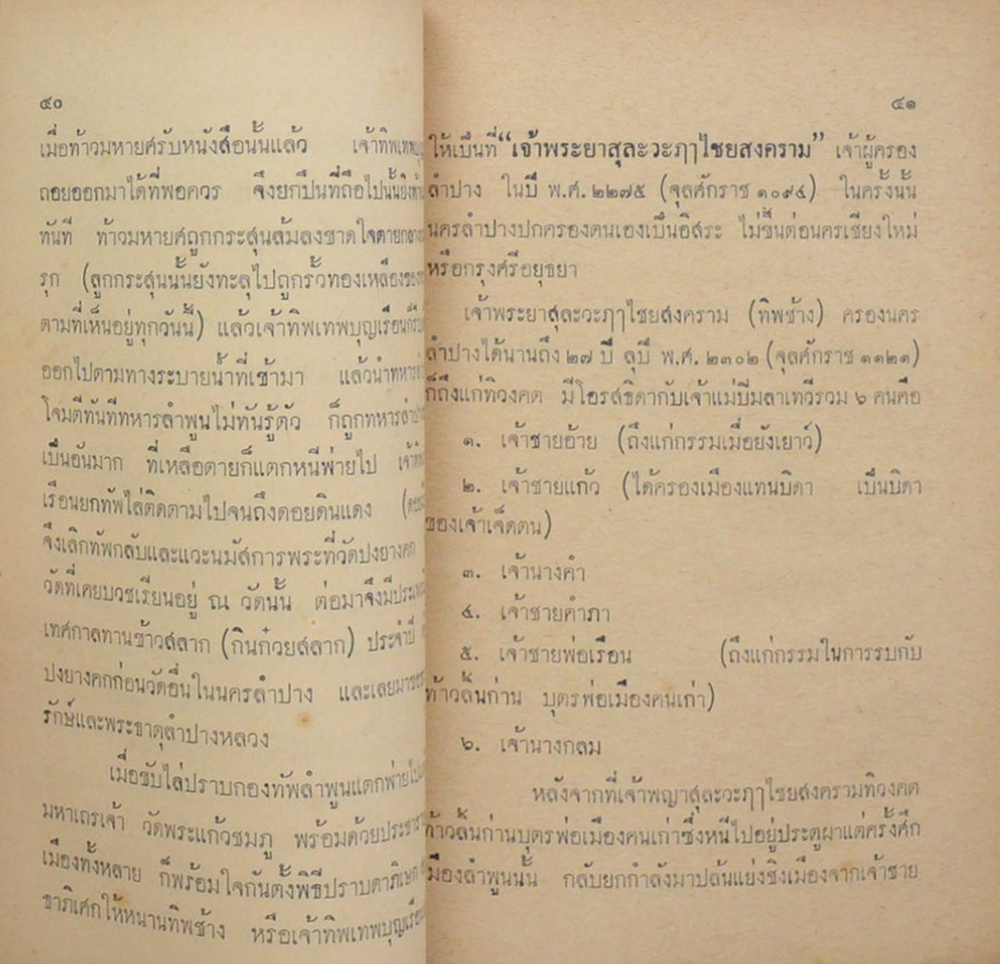 ๔๐
เมื่อท้าวมหายศรับหนังสือนั้นแล้ว เจ้าทิพเทพบุญ
ถอยออกมาได้ที่พอควร จึงยกปืนที่ถือไปนั้นยิง
ทันที ท้าวมหายศถูกกระสุนล้มลงขาดใจตายกลาง
รุก (ลูกกระสุนนั้นยังทะลุไปถูกรั้วทองเหลือง
ตามที่เห็นอยู่ทุกวันนี้) แล้วเจ้าทิพเทพบุญเรือน
ออกไปตามทางระบายน้ำที่เข้ามา แล้วนำทหาร
โจมตีทันทีทหารลำพูนไม่ทันรู้ตัว ก็ถูกทหาร
เป็นอันมาก ที่เหลือตายก็แตกหนีพ่ายไป
เรือนยกทัพไล่ติดตามไปจนถึงดอยดินแดง
จึงเลิกทัพกลับและแวะนมัสการพระที่วัดปงยางคก
วัดที่เคยบวชเรียนอยู่ ณ วัดนั้น ต่อมาจึงมีประเพ
เทศกาลทานข้าวสลาก (กินก๋วยสลาก) ประจำปี
ปงยางคกก่อนวัดอื่นในนครลำปาง และเลยมา
รักษ์และพระธาตุลำปางหลวง
เมื่อขับไล่ปราบกองทัพลำพูนแตกพ่ายไป
มหาเถรเจ้า วัดพระแก้วชมภู พร้อมด้วยประชา
เมืองทั้งหลาย ก็พร้อมใจกันตั้งพิธีปราบดาภิเษก
ชาภิเศกให้หนานทิพช้าง หรือเจ้าทิพเทพบุญเรือน
๔๑
ให้เป็นที่ “เจ้าพระยาสุละวะฦๅไชยสงคราม” เจ้าผู้ครอง
ลำปาง ในปี พ.ศ. ๒๒๗๕ (จุลศักราช ๑๐๙๔) ในครั้งนั้น
นครลำปางปกครองตนเองเป็นอิสระ ไม่ขึ้นต่อนครเชียงใหม่
หรือกรุงศรีอยุธยา
เจ้าพระยาสุละวะฦๅไชยสงคราม (ทิพช้าง) ครองนคร
ลำปางได้นานถึง ๒๗ ปี ลุปี พ.ศ. ๒๓๐๒ (จุลศักราช ๑๑๒๑)
ก็ถึงแก่ทิวงคต มีโอรสธิดากับเจ้าแม่ปิมลาเทวีรวม ๖ คนคือ
๑. เจ้าชายอ้าย (ถึงแก่กรรมเมื่อยังเยาว์)
๒. เจ้าชายแก้ว (ได้ครองเมืองแทนบิดา เป็นบิดา
ของเจ้าเจ็ดตน)
๓. เจ้านางคำ
๔. เจ้าชายคำภา
๕. เจ้าชายพ่อเรือน (ถึงแก่กรรมในการรบกับ
ท้าวลิ้นก่าน บุตรพ่อเมืองคนเก่า)
๖. เจ้านางกลม
หลังจากที่เจ้าพญาสุละวะฦๅไชยสงครามทิวงคต
ท้าวลิ้นก่านบุตรพ่อเมืองคนเก่าซึ่งหนีไปอยู่ประตูผาแต่ครั้งศึก
เมืองลำพูนนั้น กลับยกกำลังมาปล้นแย่งชิงเมืองจากเจ้าชาย